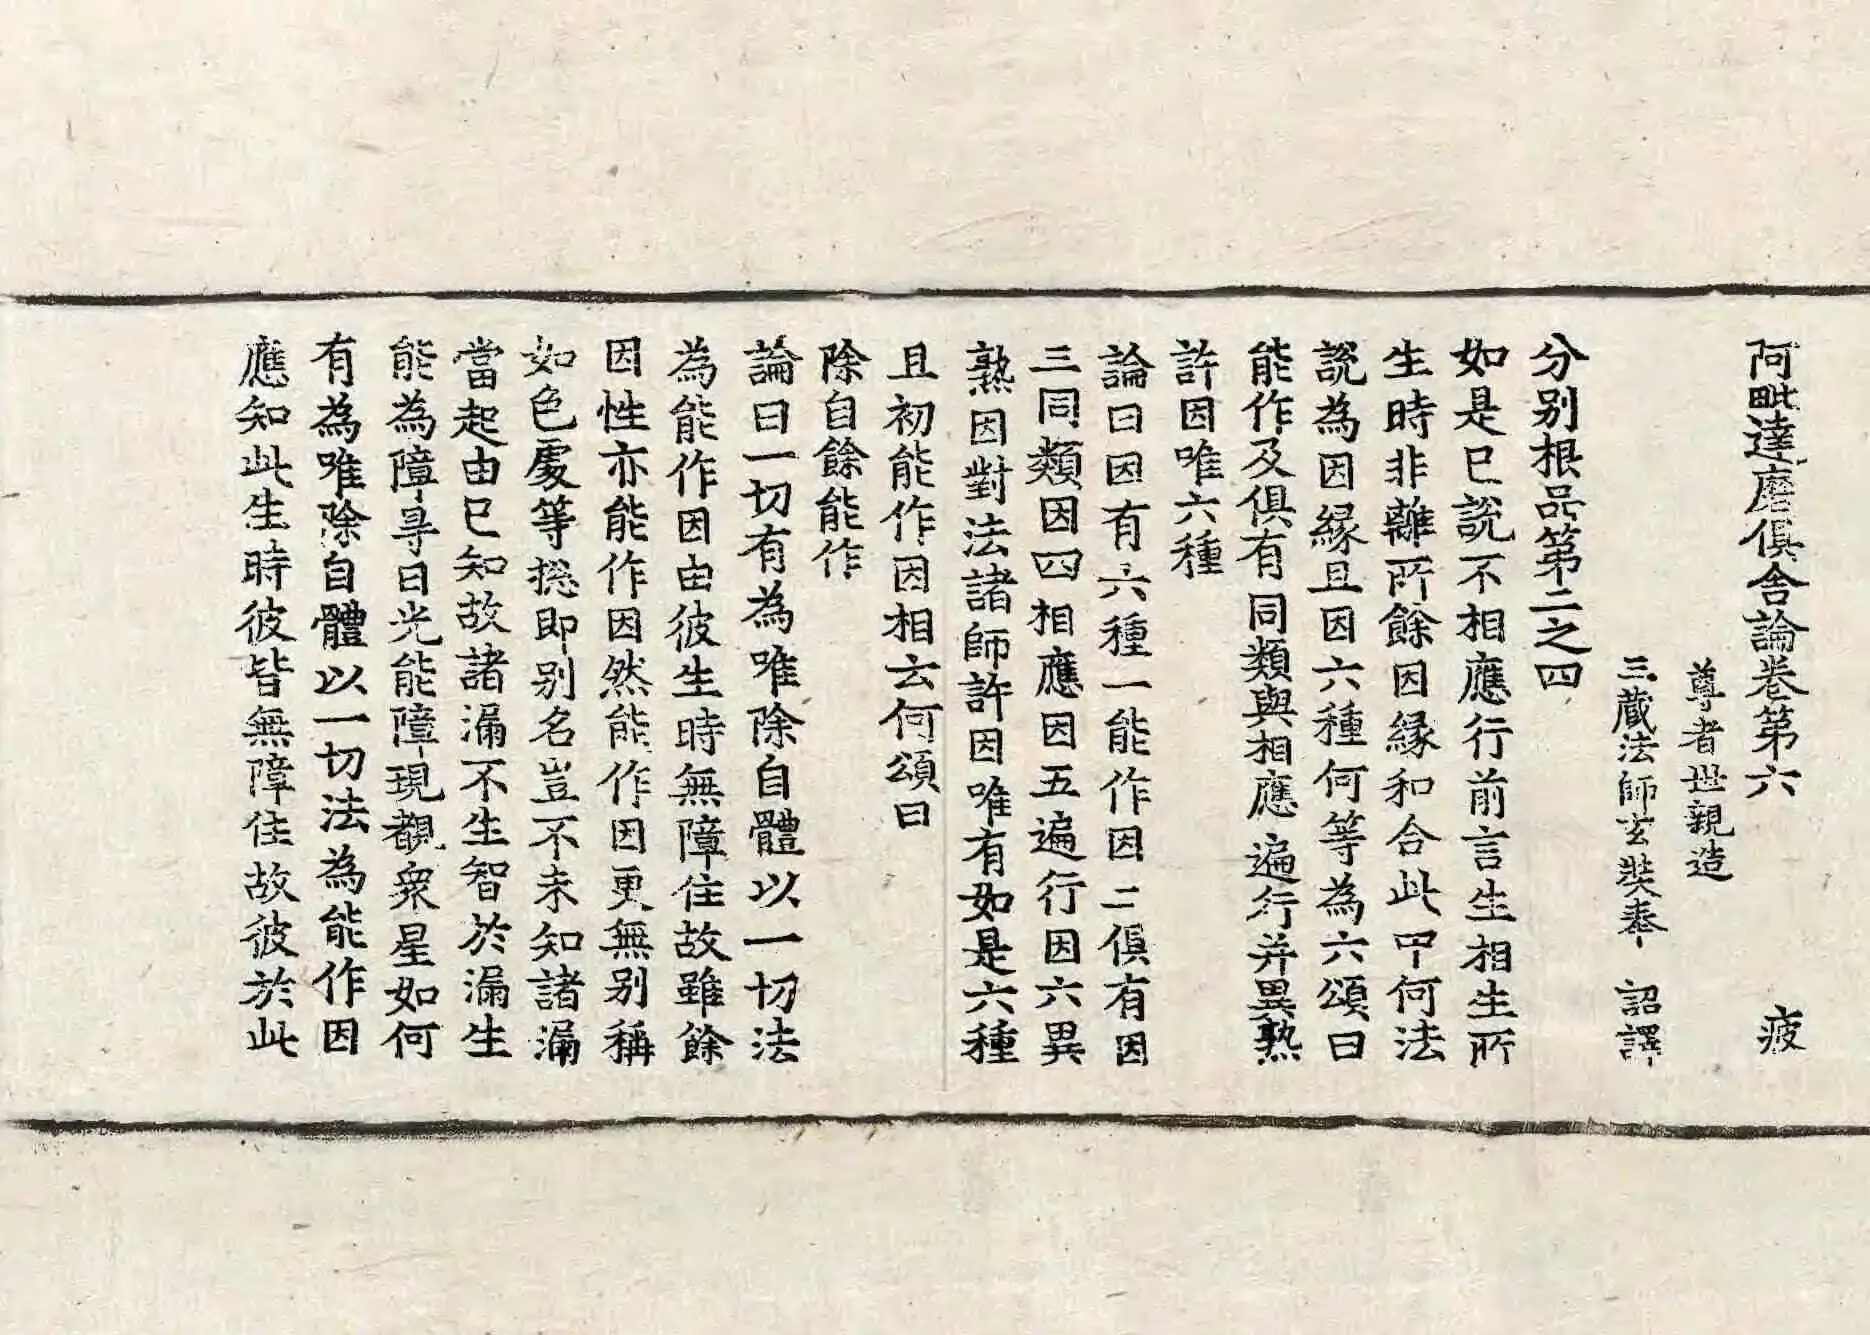 阿毗達磨俱舍論卷第六 疲
尊者世親造
三藏法師玄奘奉 詔譯
分別根品第二之四
如是已說不相應行前言生相生所
生時非離所餘因緣和合此中何法
說為因緣且因六種何等為六頌曰
能作及俱有同類與相應遍行并異熟
許因唯六種
論曰因有六種一能作因二俱有因
三同類因四相應因五遍行因六異
熟因對法諸師許因唯有如是六種
且初能作因相云何頌曰
除自餘能作
論曰一切有為唯除自體以一切法
為能作因由彼生時無障住故雖餘
因性亦能作因然能作因更無別稱
如色處等揔即別名豈不未知諸漏
當起由已知故諸漏不生智於漏生
能為障㝵日光能障現覩衆星如何
有為唯除自體以一切法為能作因
應知此生時彼皆無障住故彼於此